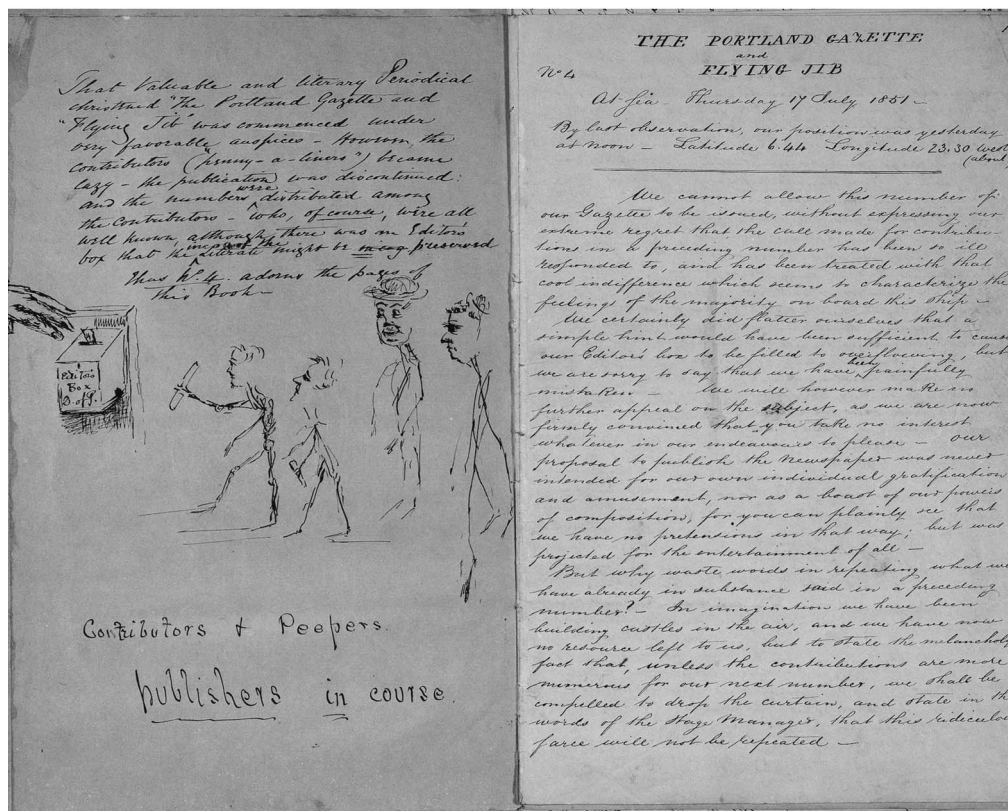 That Valuable and literary Periodical
christened "The Portland Gazette and
"Flying Jib" was commenced under
very favorable auspices - However, the
contributors ("penny-a-liners") became
lazy - the publication was discontinued:
and the numbers were distributed among
the Contributors - who, of course, were all
well known, although there was an Editor's
box that the might be preserved
Thus No. 4. adorns the pages of
this Book -
Editor's
Box
Contributors & Peepers.
publishers in course.
THE PORTLAND GAZETTE
and
FLYING JIB
No 4
At Sea - Thursday 17 July 1851 -
By last observation, our position was yesterday
at noon - Latitude 6.44 Longitude 23.30 West
(about
We cannot allow this number of
our Gazette to be issued, without expressing our
extreme regret that the call made for contribu-
tions in a preceding number has been so ill
responded to, and has been treated with that
cool indifference which seems to characterize the
feelings of the majority on board this ship -
We certainly did flatter ourselves that a
simple hint would have been sufficient to cause
our Editor's box to be filled to overflowing, but
we are sorry to say that we have been painfully
mistaken - We will however make no
further appeal on the subject, as we are now
firmly convinced that you take no interest
whatever in our endeavours to please - our
proposal to publish the Newspaper was never
intended for our own individual gratification
and amusement, nor as a boast of our powers
of composition, for you can plainly see that
we have no pretensions in that way; but was
projected for the entertainment of all -
But why waste words in repeating what we
have already in substance said in a preceding
number? In imagination we have been
building castles in the air, and we have now
no resource left to us, but to state the melancholy
fact that, unless the contributions are more
numerous for our next number, we shall be
compelled to drop the curtain, and state in the
words of the Stage Manager, that this ridiculous
farce will not be repeated -